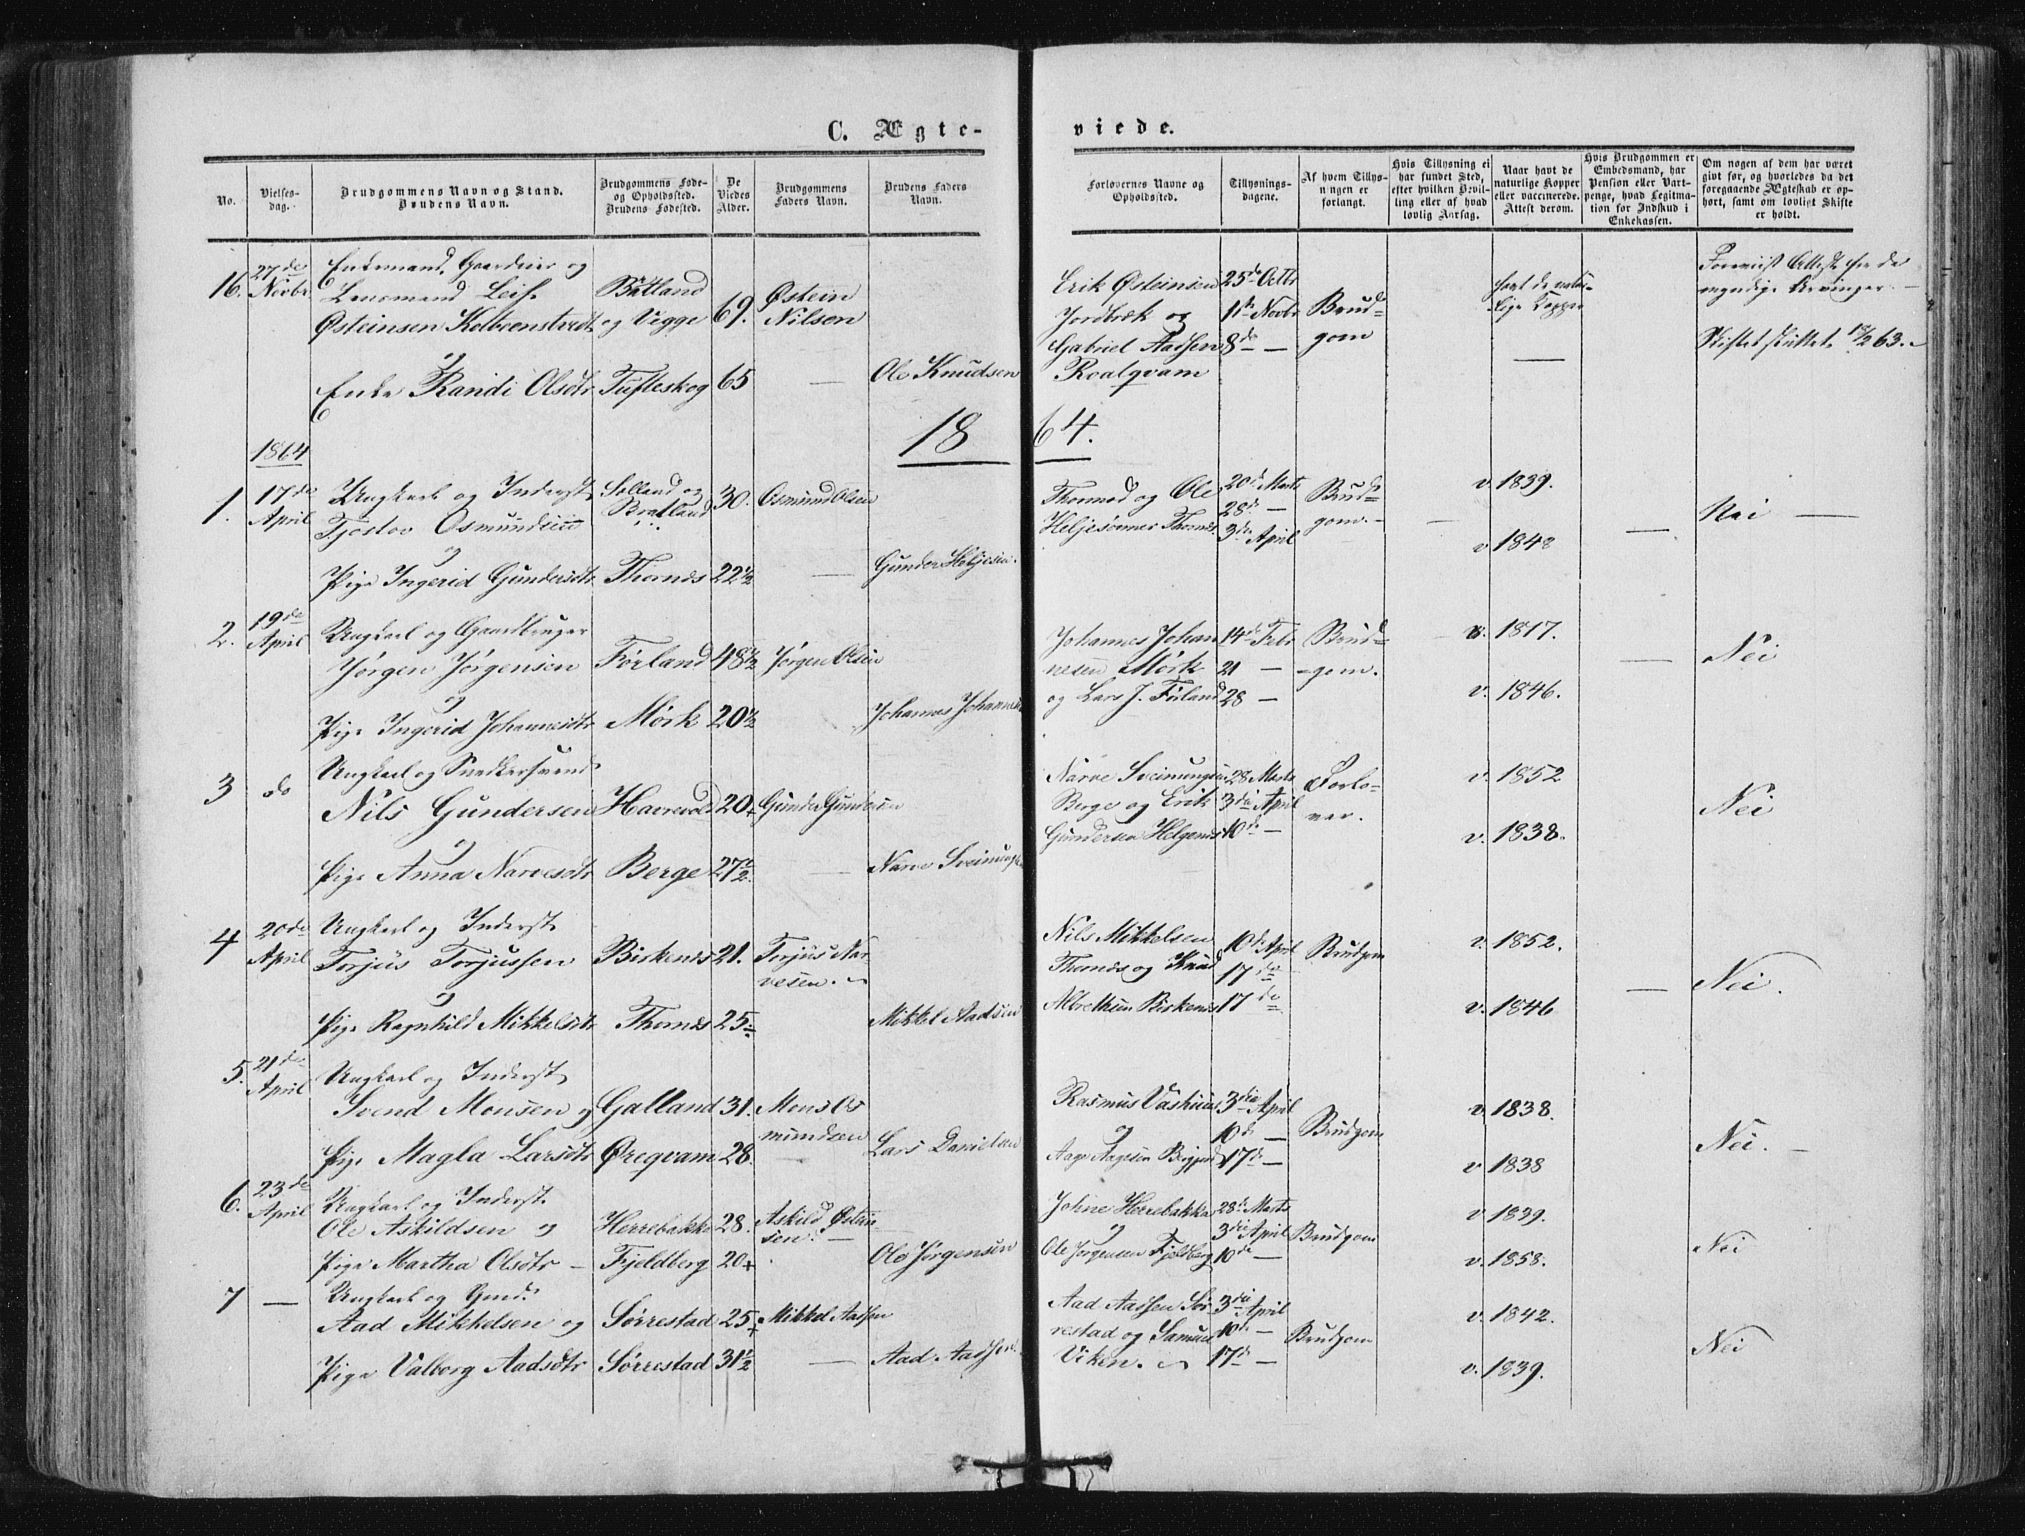 C. Ægte-
viede.
No.
Vielses-
dag.
Brudgommens Navn og Stand.
Brudens Navn.
Brudgommens Føde-
og Opholdssted.
Brudens Fødested.
De
Viedes
Alder.
Brudgommens
Faders Navn.
Brudens Faders
Navn.
Forlovernes Navne og
Opholdssted.
Tillysnings-
dagene.
Af hvem Tillys-
ningen er
forlangt.
Hvis Tillysning ei
har fundet Sted,
efter hvilken Bevil-
ling eller af hvad
lovlig Aarsag.
Naar havt de
naturlige Kopper
eller vaccinerede.
Attest derom.
Hvis Brudgommen er
Embedsmand, har
Pension eller Vart-
penge, hvad Legitima-
tion for Indskud i
Enkekassen.
Om nogen af dem har været
givt før, og hvorledes da det
foregaaende Ægteskab er op-
hørt, samt om lovligt Skifte
er holdt.
16. 27de Novbr
Enkemand, Gaardeier og
Lensmand Leif
Østeinsen Kolbrenstvedt
og
Enke Randi Olsdtr
Bratland
og Vegge
Tufteskog
69.
65
Østein
Nilsen
Ole Knudsen
Erik Østeinsen
Jordbræk og
Gabriel Aadsen
Roalqvam
25de Octbr
1ste Novbr
8de —
Brud-
gom
havt de natur-
lige Kopper
Foreviist Attest fra de
myndige Arvinger. —
Skiftet sluttet 63. —
1864
1864.
1. 17de April
Ungkarl og Inderst
Tjostov Osmundsen
og
Pige Ingerid Gundersdtr
Solland og
Bratland
Thornes
30.
22½
Osmund Olsen
Gunder Heljesen.
Thormod og Ole
Heljesønner Thornes
20de Marts
28de —
3die April
Brud-
gom. —
v. 1839.
v 1848
Nei —
2. 19de April
Ungkarl og Gaardbruger
Jørgen Jørgensen
og
Pige Ingerid Johannesdtr
Førland
Mørk
48½
20½
Jørgen Olsen
Johannes Johannes
Johannes Johan
nesen Mørk
og Lars J. Førland
14de Febr
21 —
28 —
Brud-
-gom.
v. 1817.
v. 1846.
Nei
3 do
Ungkarl og Snedkersvend
Nils Gundersen
og
Pige Anna Narvesdtr
Havrevold
Berge
20+
27½
Gunder Gundersen
Narve Sveinungs
Narve Sveinungsen
Berge og Erik
Gundersen Helgenes
28 Marts
3die April
10de —
Forlo-
ver.
v. 1852
v. 1838.
Nei
4 20de April
Ungkarl og Inderst
Torjus Torjussen
og
Pige Ragnhild Mikkelsdtr
Birkenes
Thornes
21.
25
Torjus Nar-
vesen.
Mikkel Aadsen
Nils Mikkelsen
Thornes og Knud
Albrethsen Birkenes
10de April
17de
17de
Brudgom
v. 1852.
v. 1846
Nei.
5. 21de April
Ungkarl og Inderst
Svend Monsen og
Pige Magla Larsdtr
Galland
Øreqvam
31.
28.
Mons Os
mundsen
Lars Danielsen
Rasmus Vashuus
og
Aage Aagesen
3die April
10de —
17de —
Brudgom
v. 1838.
v. 1838
Nei. —
6. 23de April
Ungkarl og Inderst
Ole Askildsen og
Pige Martha Olsdtr —
Herrebakke
Fjeldberg
28.
20+
Askild Østein-
sen. —
Ole Jørgensen
Johne Herrebakka
og
Ole Jørgensen Fjeldberg
28de Marts
3die April
10de —
Brudgom
v. 1839.
v. 1858.
Nei
7 —
Ungkarl og Gmd.
Aad Mikkelsen og
Pige Valborg Aadsdtr
Sørrestad
Sørrestad
25+
31½
Mikkel Aadsen
Aad Aadsen
Aad Aadsen Sør
restad og Samuel
Viken.
3die April
10de —
17de —
Brudgom
v. 1842.
v. 1839.
Nei